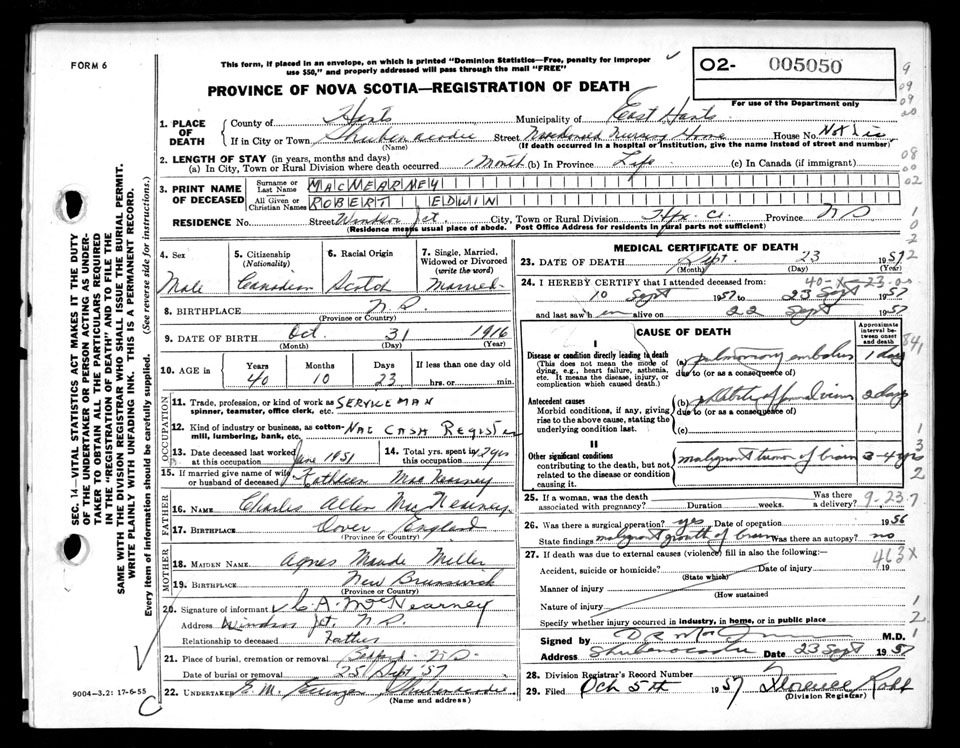 FORM 6
This form, if placed in an envelope, on which is printed "Dominion Statistics—Free, penalty for improper
use $50," and properly addressed will pass through the mail "FREE"
O2- 005050
For use of the Department only
PROVINCE OF NOVA SCOTIA—REGISTRATION OF DEATH
1. PLACE OF DEATH
County of Hants Municipality of East Hants
If in City or Town Shubenacadie Street Macdonald Nursing Home House No. Not
(Name) (If death occurred in a hospital or institution, give the name instead of street and number)
2. LENGTH OF STAY (in years, months and days)
(a) In City, Town or Rural Division where death occurred 1 Month (b) In Province Life (c) In Canada (if immigrant)
3. PRINT NAME OF DECEASED
Surname or Last Name MACNEARNEY
All Given or Christian Names ROBERT EDWIN
RESIDENCE No. Street Windsor Jct. City, Town or Rural Division Hfx. Co. Province N.S.
(Residence means usual place of abode. Post Office Address for residents in rural parts not sufficient)
4. Sex Male
5. Citizenship (Nationality) Canadian
6. Racial Origin Scotch
7. Single, Married, Widowed or Divorced (write the word) Married
8. BIRTHPLACE N.S.
(Province or Country)
9. DATE OF BIRTH Oct. 31 1916
(Month) (Day) (Year)
10. AGE in Years 40 Months 10 Days 23 If less than one day hrs. or min.
OCCUPATION
11. Trade, profession, or kind of work as spinner, teamster, office clerk, etc. SERVICEMAN
12. Kind of industry or business, as cotton-mill, lumbering, bank, etc. NAT CASH REGISTER
13. Date deceased last worked at this occupation June 1951
14. Total yrs. spent in this occupation yrs
15. If married give name of wife or husband of deceased Kathleen MacNearney
FATHER
16. NAME Charles Allen MacNearney
17. BIRTHPLACE Dover, England
(Province or Country)
MOTHER
18. MAIDEN NAME Agnes Maude Miller
19. BIRTHPLACE New Brunswick
(Province or Country)
20. Signature of informant C A MacNearney
Address Windsor Jct N.S.
Relationship to deceased Father
21. Place of burial, cremation or removal Bedford N.S.
Date of burial or removal 25 Sept '57
22. UNDERTAKER E. M. Shubenacadie
(Name and address)
MEDICAL CERTIFICATE OF DEATH
23. DATE OF DEATH Sept. 23 1957
(Month) (Day) (Year)
40-X-23.00
24. I HEREBY CERTIFY that I attended deceased from:
10 Sept 1957 to 23 Sept 1957
and last saw him alive on 22 Sept 1957
CAUSE OF DEATH
Approximate interval between onset and death
I
Disease or condition directly leading to death
(This does not mean the mode of dying, e.g., heart failure, asthenia, etc. It means the disease, injury, or complication which caused death.)
(a) pulmonary embolus 1 day
due to (or as a consequence of)
Antecedent causes
Morbid conditions, if any, giving rise to the above cause, stating the underlying condition last.
(b) phlebitis of 2 days
due to (or as a consequence of)
(c)
II
Other significant conditions
contributing to the death, but not related to the disease or condition causing it.
malignant tumor of brain 3-4 yrs
25. If a woman, was the death associated with pregnancy? Duration weeks. Was there a delivery?
9-23-7
26. Was there surgical operation? yes Date of operation 1956
State findings malignant growth of brain Was there an autopsy? no
27. If death was due to external causes (violence) fill in also the following:—
463X
Accident, suicide or homicide? Date of injury 19
(State which)
Manner of injury
(How sustained)
Nature of injury
Specify whether injury occurred in industry, in home, or in public place
Signed by M.D.
Address Shubenacadie Date 23 Sept 1957
28. Division Registrar's Record Number
29. Filed Oct 5th 1957 Florence
(Division Registrar)
SEC. 14—VITAL STATISTICS ACT MAKES IT THE DUTY
OF THE UNDERTAKER OR PERSON ACTING AS UNDER-
TAKER TO OBTAIN ALL THE PARTICULARS REQUIRED
IN THE "REGISTRATION OF DEATH" AND TO FILE THE
SAME WITH THE DIVISION REGISTRAR WHO SHALL ISSUE THE BURIAL PERMIT.
WRITE PLAINLY WITH UNFADING INK. THIS IS A PERMANENT RECORD.
Every item of information should be carefully supplied. (See reverse side for instructions.)
9004-3.2: 17-6-55